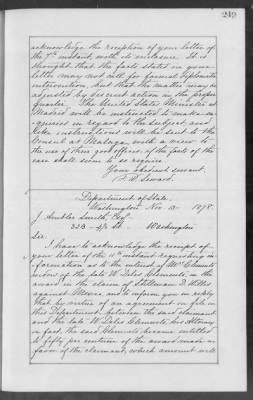 249
acknowledge the reception of your letter of
the 7th instant, with its enclosure. It is
thought that the facts stated in your
letter may not call for formal diplomatic
intervention, but that the matter may be
adjusted by discreet action in the proper
quarter. The United States Minister at
Madrid will be instructed to make in-
quiries in regard to the subject and
like instructions will be sent to the
Consul at Malaga, with a view to
the use of their good offices, if the facts of the
case shall seem to so require.
Your obedient servant,
F. W. Seward.
Department of State,
Washington Nov. 1878.
J. Ambler Smith, Esq.
323 4½ St. Washington
Sir:
I have to acknowledge the receipt of
your letter of the 11th instant requesting in-
formation as to the interest of Mrs. Clements
widow of the late W. Dales Clements, in the
award in the claim of Stillman D. Hills
against Mexico, and to inform you in reply
that by virtue of an agreement on file in
this Department, between the said claimant
and the late W. Dales Clements, his Attorney
in fact, the said Clements became entitled
to fifty per centum of the award made in
favor of the claimant, which amount will